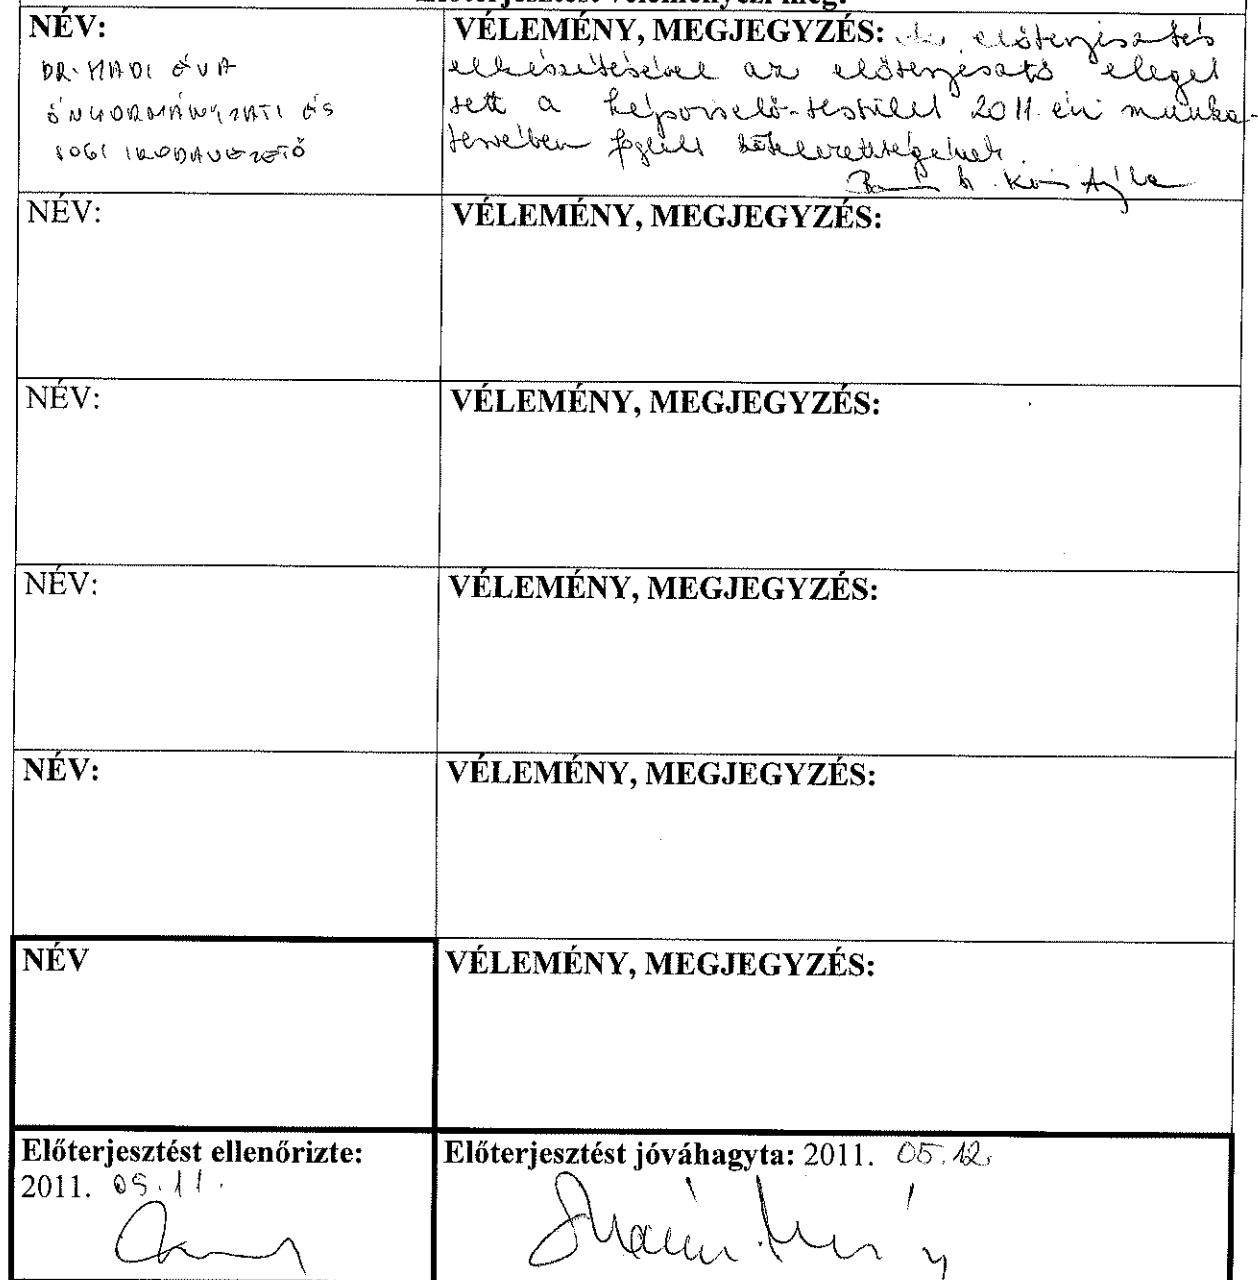 Előterjesztést véleményezi meg:
NÉV:
DR. MADI ÉVA
ÖNKORMÁNYZATI ÉS
JOGI IRODAVEZETŐ
VÉLEMÉNY, MEGJEGYZÉS: Az előterjesztés
elkészítésével az előterjesztő eleget
tett a képviselő-testület 2011. évi munka-
tervében foglalt kötelezettségének.
NÉV:
VÉLEMÉNY, MEGJEGYZÉS:
NÉV:
VÉLEMÉNY, MEGJEGYZÉS:
NÉV:
VÉLEMÉNY, MEGJEGYZÉS:
NÉV:
VÉLEMÉNY, MEGJEGYZÉS:
NÉV
VÉLEMÉNY, MEGJEGYZÉS:
Előterjesztést ellenőrizte:
2011. 05.11.
Előterjesztést jóváhagyta: 2011. 05.12.